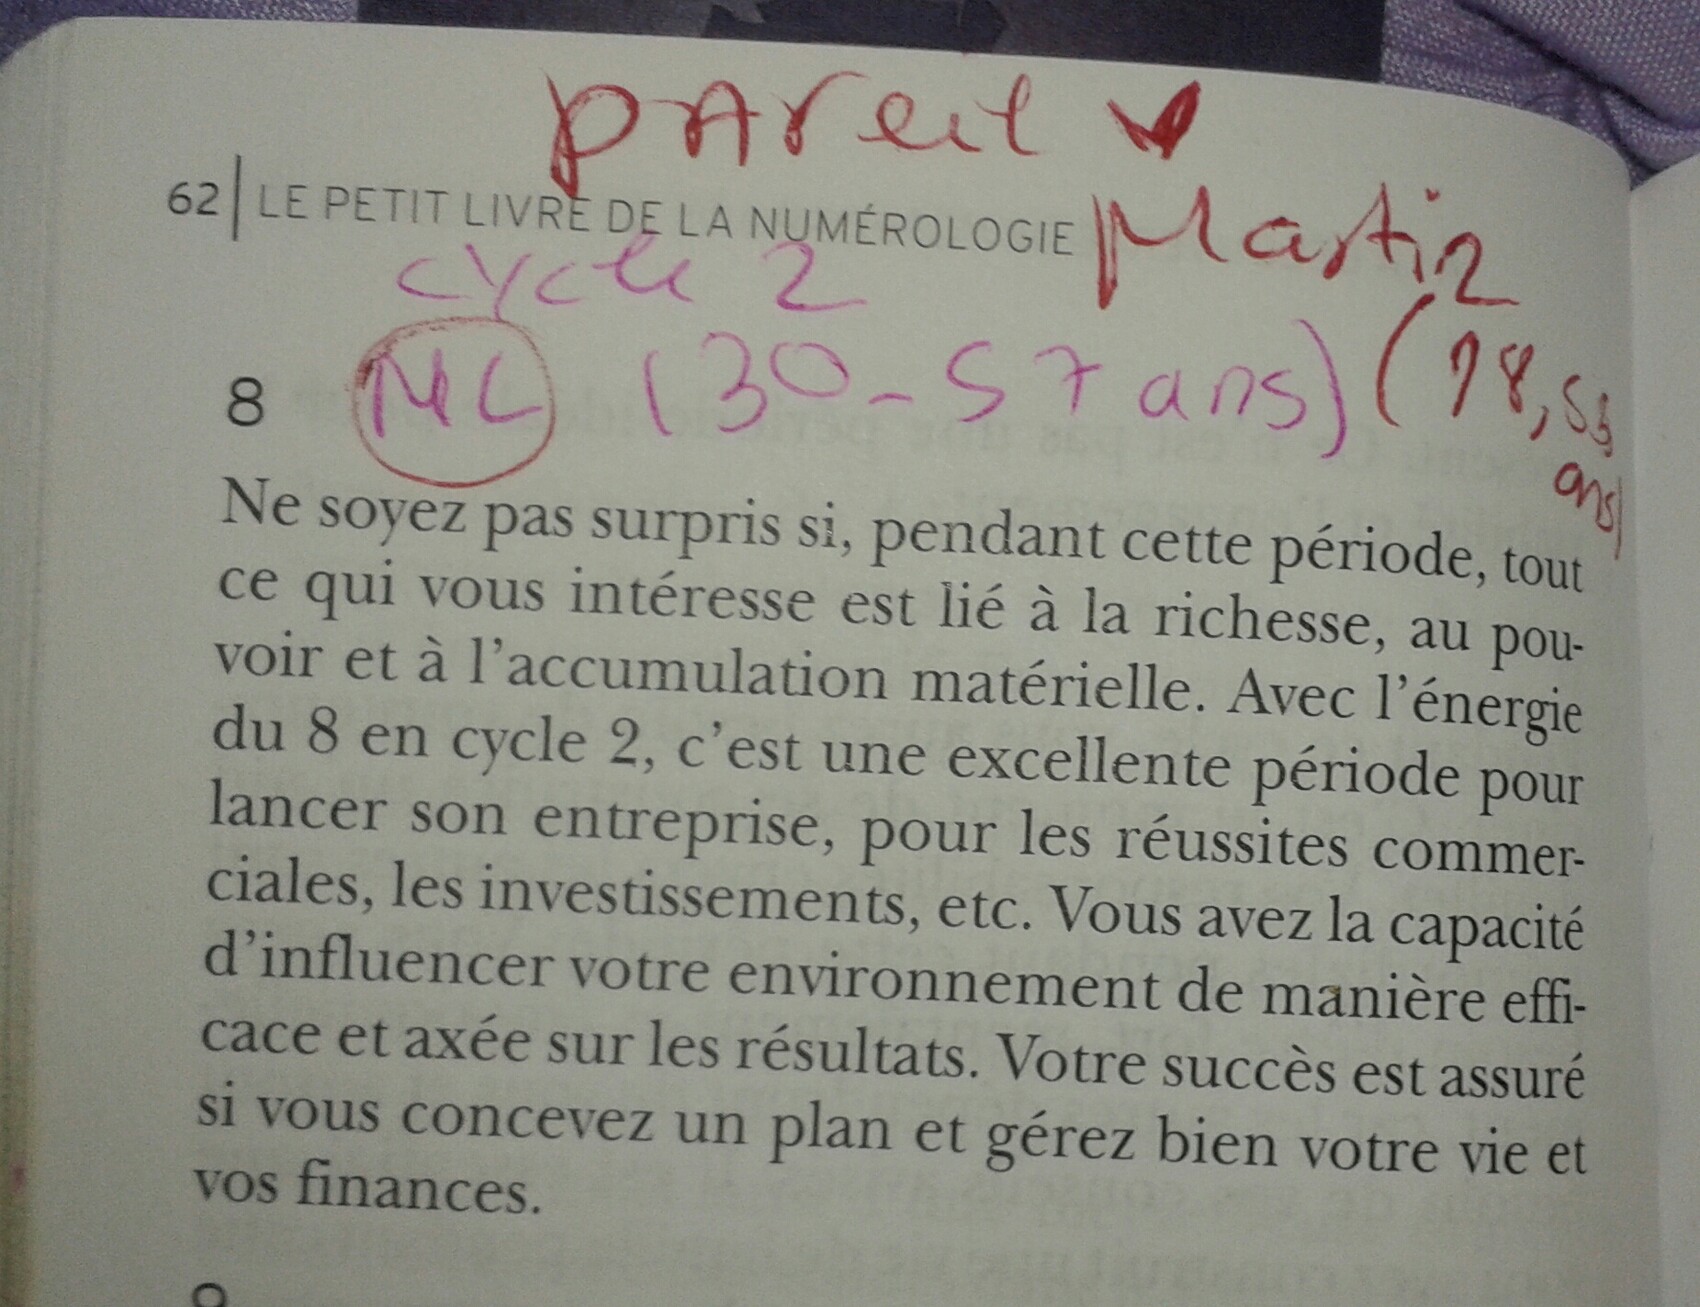 pAreil
62 | LE PETIT LIVRE DE LA NUMÉROLOGIE Martin
cycle 2
8 MC (30-57 ans) (28, 53 ans)
Ne soyez pas surpris si, pendant cette période, tout
ce qui vous intéresse est lié à la richesse, au pou-
voir et à l'accumulation matérielle. Avec l'énergie
du 8 en cycle 2, c'est une excellente période pour
lancer son entreprise, pour les réussites commer-
ciales, les investissements, etc. Vous avez la capacité
d'influencer votre environnement de manière effi-
cace et axée sur les résultats. Votre succès est assuré
si vous concevez un plan et gérez bien votre vie et
vos finances.